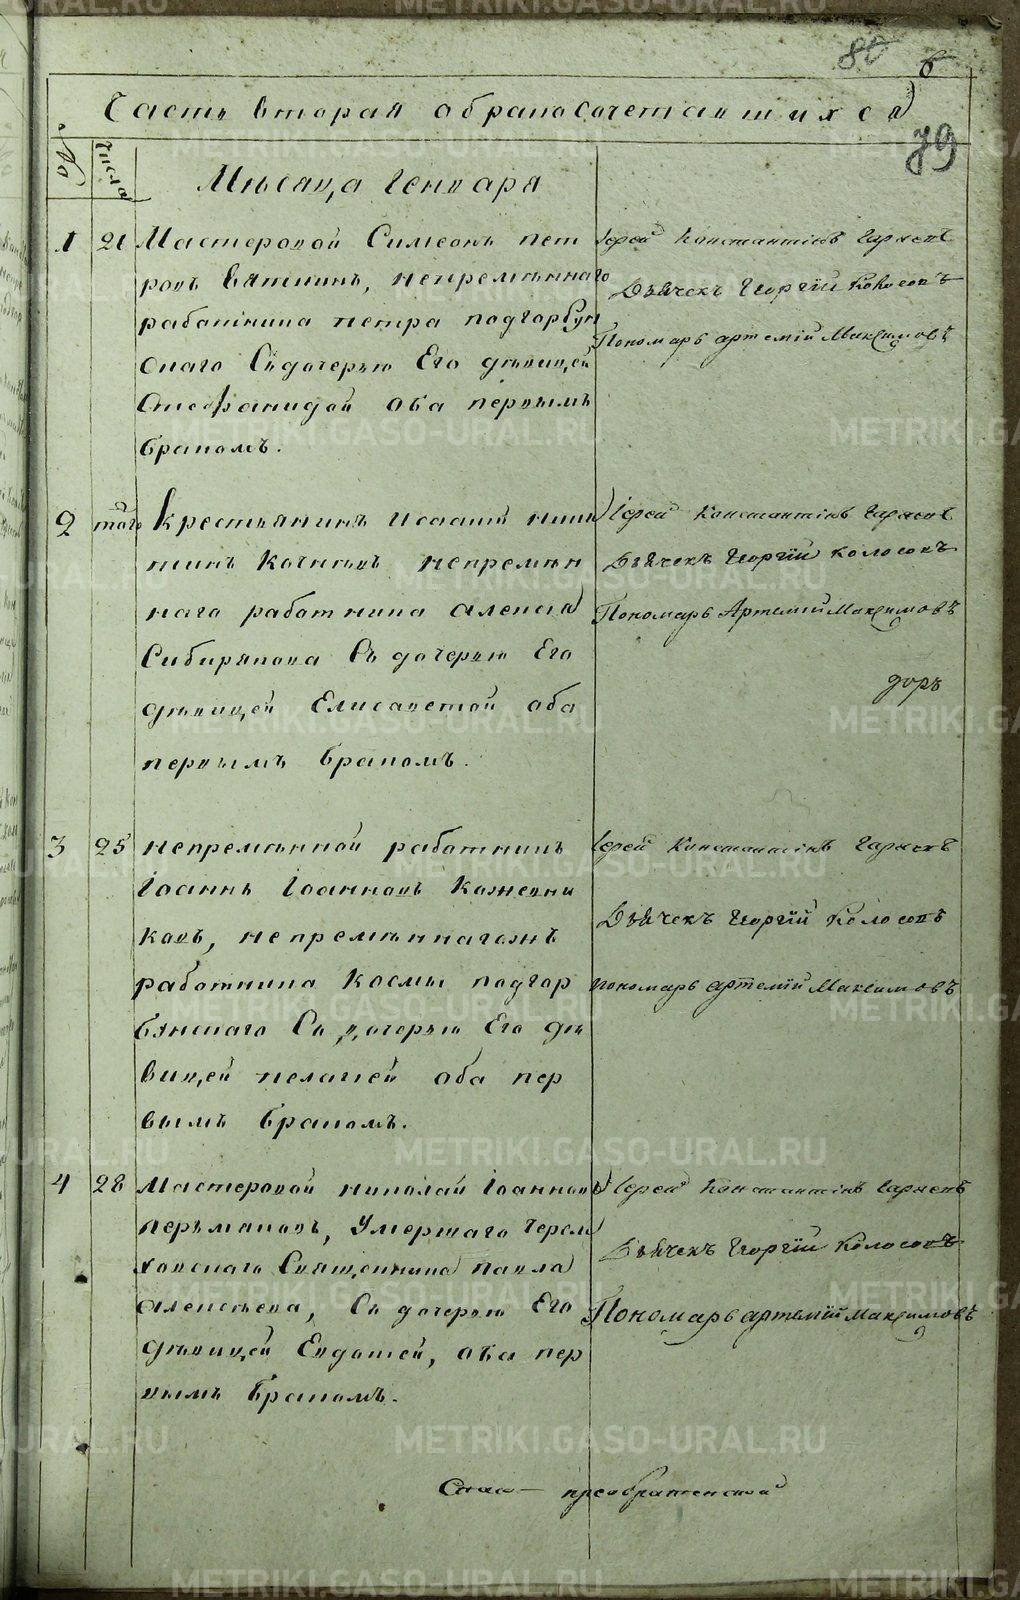 80 6
Часть вторая о бракосочетавшихся
79
№ числа
Мѣсяца Генваря
1 21 Мастеровой Симеонъ Пет
ровъ Вяткинъ, непремѣннаго
работника Петра Подгорбун
скаго Съ дочерью Его дѣвицей
Стефанидой оба первымъ
бракомъ.
Іерей Константінъ
Дьячекъ Георгій Колосовъ
Пономарь Артемій Максимовъ
2 того Крестьянинъ Исаакій Ники
тинъ Кочневъ непремѣн
наго работника Алексѣя
Сибирякова Съ дочерью Его
дѣвицей Елисаветой оба
первымъ бракомъ.
Іерей Константінъ
Дьячекъ Георгій Колосовъ
Пономарь Артемій Максимовъ
3 25 Непремѣнной работникъ
Іоаннъ Іоанновъ Кожевни
ковъ, непремѣннагожъ
работника Космы Подгор
бунскаго Съ дочерью Его дѣ
вицей Пелагіей оба пер
вымъ бракомъ.
Іерей Константінъ
Дьячекъ Георгій Колосовъ
Пономарь Артемій Максимовъ
4 28 Мастеровой Николай Іоанновъ
Перьмяковъ, Умершаго Черем
ховскаго Священника Павла
Алексѣева, Съ дочерью Его
дѣвицей Евдокіей, оба пер
вымъ бракомъ.
Іерей Константінъ
Дьячекъ Георгій Колосовъ
Пономарь Артемій Максимовъ
Спасо-преображенской
METRIKI.GASO-URAL.RU